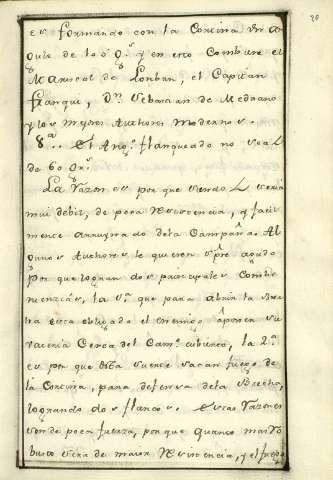 20
es formando con la Cortina un an
gulo de 100 g.s y en esto Combiene el
Mariscal de Vouban, el Capitan
franque, D.n Sebastian de Medrano
y los mejores Authores modernos.
8.a .. el Ang.o flanqueado no sea L
de 60 gr.s
La razon es por que siendo L seria
mui debil, de poca resistencia, y facil
mente arruynado de la Campaña. Al
gunos Authores le quieren s.pre agudo
por que logran dos principales Combe
niencias, la 1.a que para abrir la bre
cha esta obligado el enemigo a poner su
vateria Cerca del Cam.o cubierto, la 2.a
es por que de la suerte sacan fuego de
la Cortina, para defensa de la brecha,
logrando dos flancos. Estas razones
son de poca fuerza, por que quanto mas ro
busto sera de maior resistencia, y el fuego